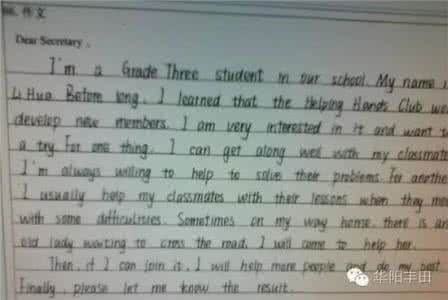 作文
Dear Secretary,
I'm a Grade Three student in our school. My name i
Li Hua Before long, I learned that the Helping Hands Club we
develop new members. I am very interested in it and want
a try. For one thing, I can get along well with my classmate
I'm always willing to help to solve their problems. For anothe
I usually help my classmates with their lessons when they me
with some difficulties. Sometimes on my way home, there is an
old lady waiting to cross the road, I will come to help her.
Then, if I can join it, I will help more people and do my best
Finally, please let me know the result.
华阳丰田